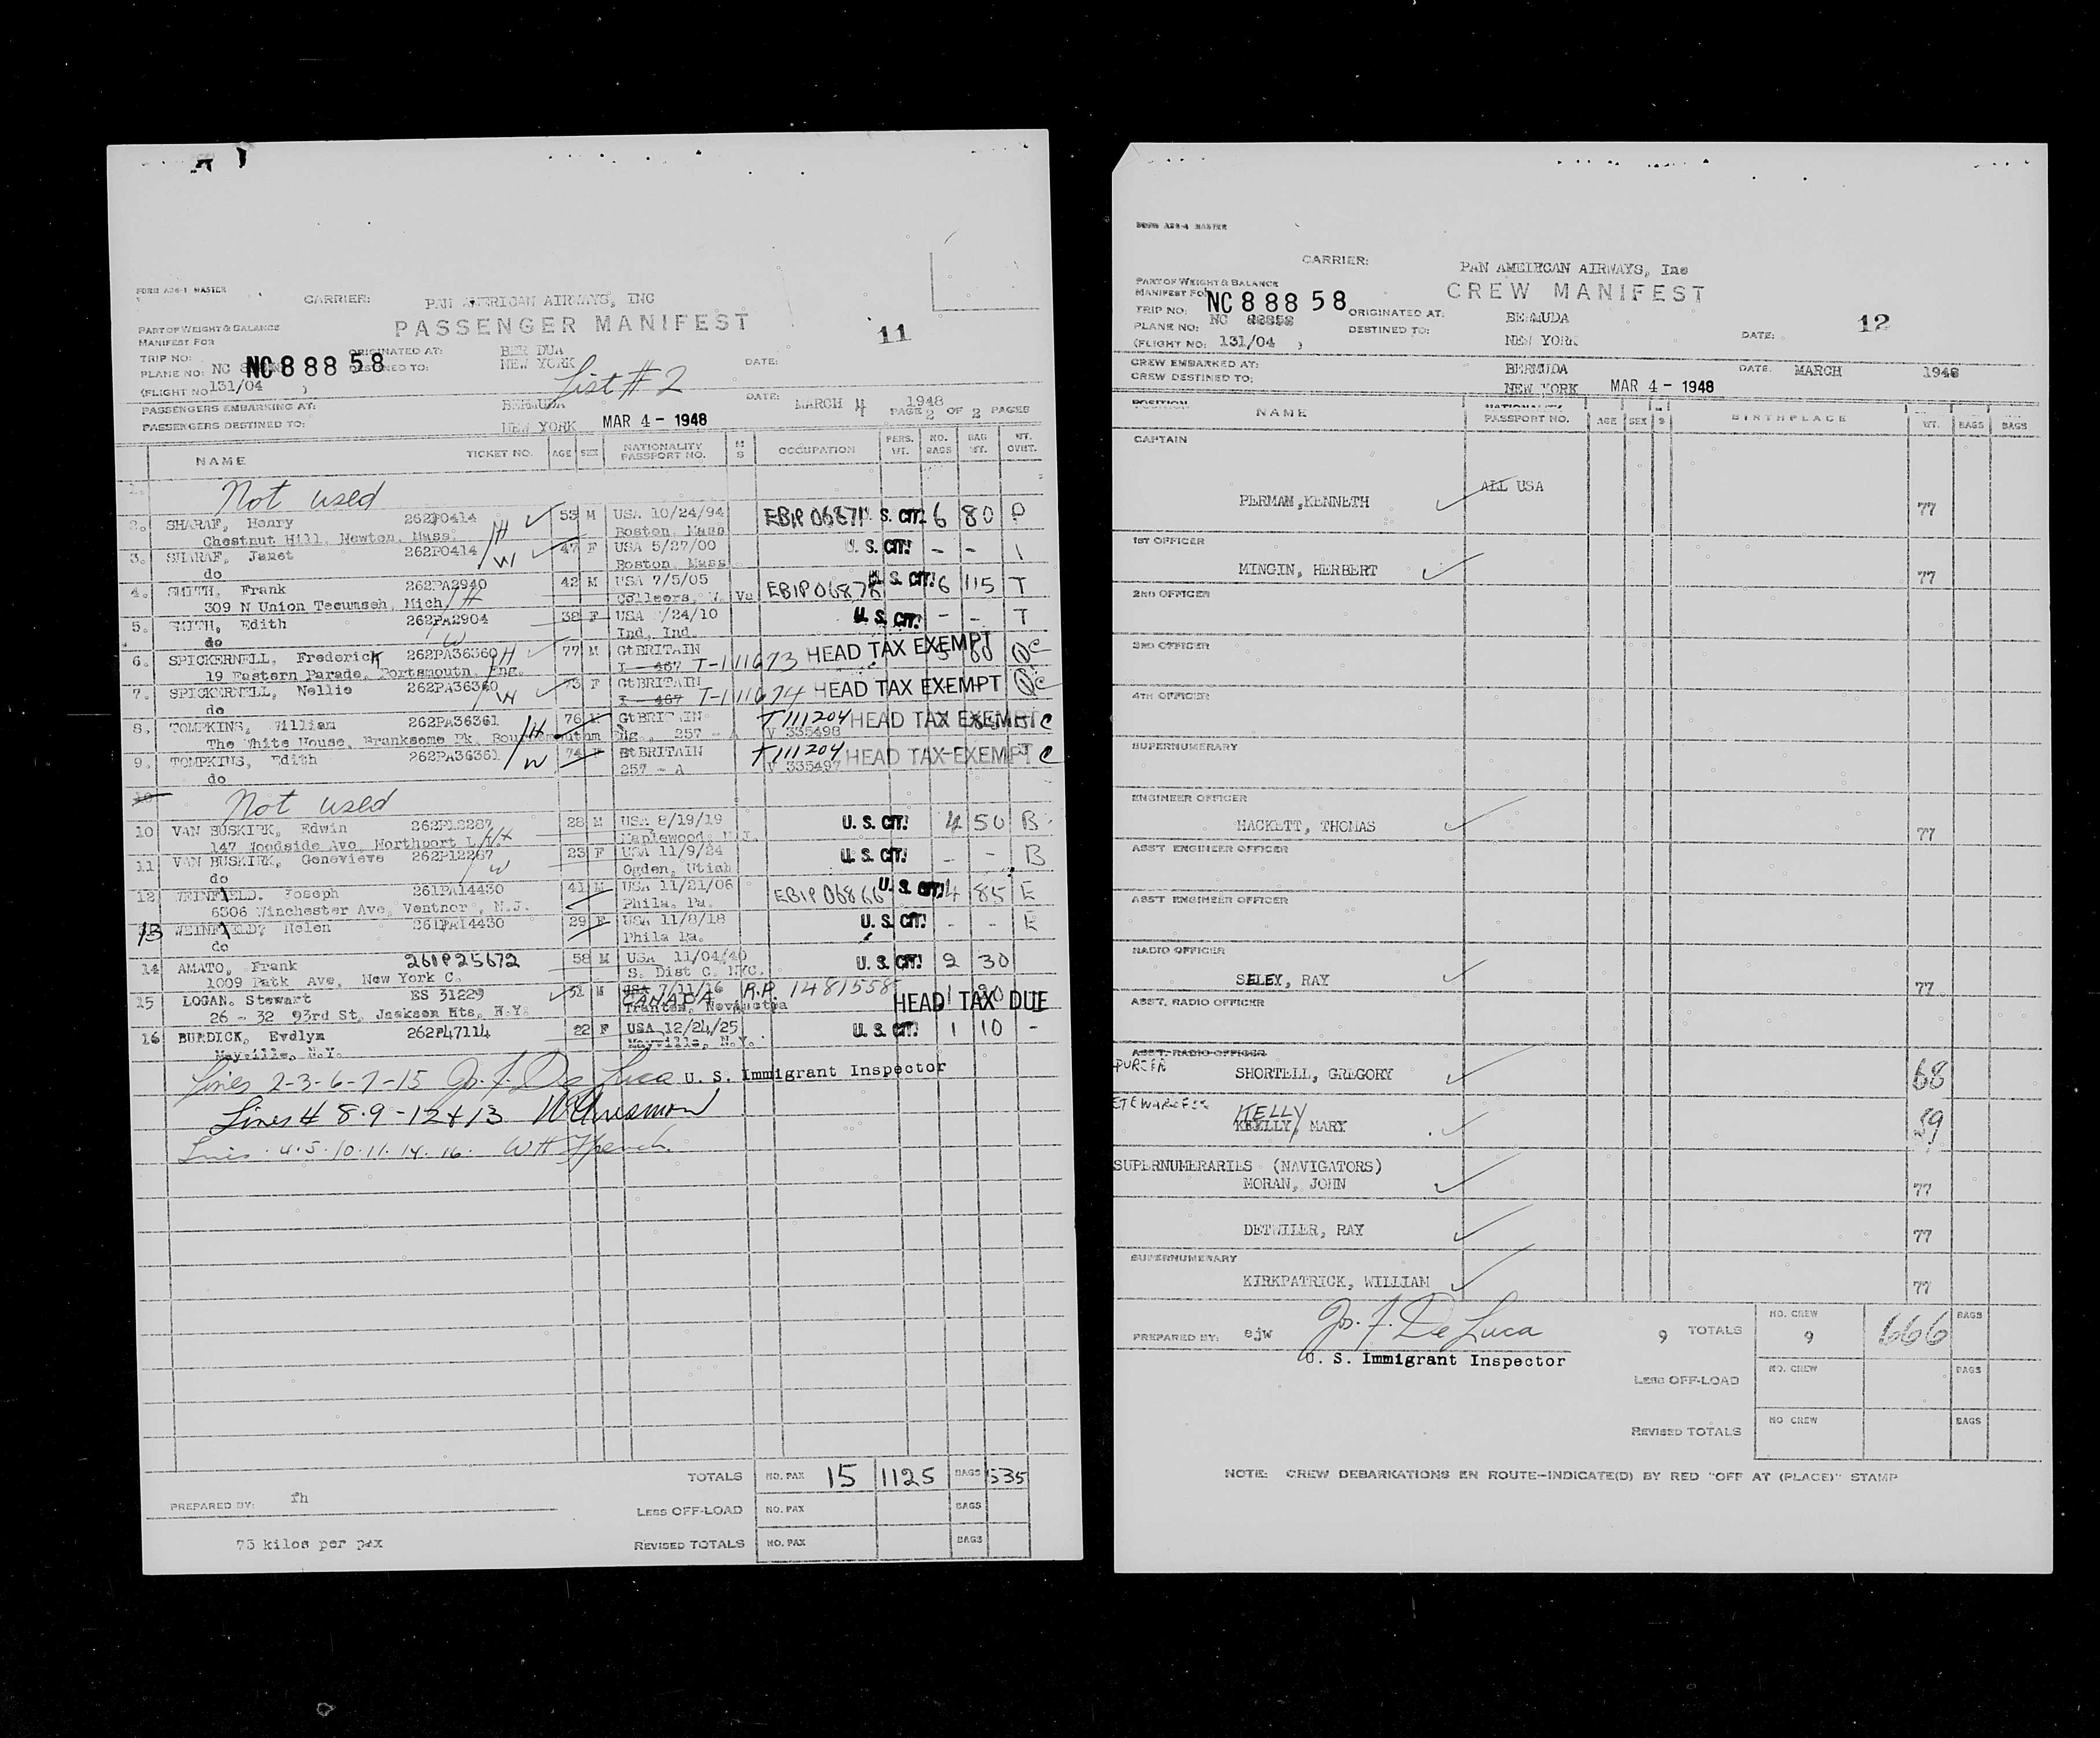 FORM A26-1 MASTER
CARRIER: PAN AMERICAN AIRWAYS, INC
PASSENGER MANIFEST
11
PART OF WEIGHT & BALANCE
MANIFEST FOR
TRIP NO: ORIGINATED AT: BER DUA
PLANE NO: NC NC 88858 DESTINED TO: NEW YORK DATE:
(FLIGHT NO 131/04 ) List #2
PASSENGERS EMBARKING AT: BERMUDA DATE: MARCH 4 1948
PASSENGERS DESTINED TO: NEW YORK MAR 4 - 1948 PAGE 2 OF 2 PAGES
NAME TICKET NO. AGE SEX NATIONALITY PASSPORT NO. M S OCCUPATION PERS. WT. NO. BAGS BAG WT. WT. OVHT.
1. Not used
2. SHARAF, Henry 262P0414 H 53 M USA 10/24/94 U. S. CIT. 6 80
Chestnut Hill, Newton, Mass. Boston, Mass
3. SHARAF, Janet 262P0414 W 47 F USA 5/27/00 U. S. CIT! - -
do Boston, Mass
4. SMITH, Frank 262PA2940 H 42 M USA 7/5/05 EBIP06878 U. S. CIT! 6 115 T
309 N Union Tecumseh, Mich
5. SMITH, Edith 262PA2904 W 38 F USA /24/10 U. S. CIT! - - T
do Ind, Ind.
6. SPICKERNELL, Frederick 262PA36360 H 77 M GtBRITAIN T-111673 HEAD TAX EXEMPT
19 Eastern Parade, Portsmouth, Eng. I - 467
7. SPICKERNELL, Nellie 262PA36360 W 73 F GtBRITAIN T-111674 HEAD TAX EXEMPT
do I - 467
8. TOMPKINS, William 262PA36361 H 76 M GtBRITAIN T111204 HEAD TAX EXEMPT C
The White House, Branksome Pk, Bournemouthm Eng., 257 - A V 335498
9. TOMPKINS, Edith 262PA36361 W 74 F GtBRITAIN T111204 HEAD TAX EXEMPT C
do 257 - A V 335497
Not used
10 VAN BUSKIRK, Edwin 262P12287 H 28 M USA 8/19/19 U. S. CIT! 4 50 B
147 Woodside Ave, Northport L.I. Maplewood, N.J.
11 VAN BUSKIRK, Genevieve 262P12287 W 23 F USA 11/9/24 U. S. CIT! - - B
do Ogden, Utiah
12 WEINFIELD. Joseph 261PA14430 41 M USA 11/21/06 EBIP06866 U. S. CIT! 4 85 E
6306 Winchester Ave, Ventnor, N.J. Phila. Pa.
13 WEINFIELD, Helen 261PA14430 29 F USA 11/8/18 U. S. CIT! - - E
do Phila Pa.
14 AMATO, Frank 261P25672 58 M USA 11/04/40 U. S. CIT! 2 30
1009 Park Ave, New York C. S. Dist C. NYC.
15 LOGAN. Stewart ES 31229 31 M USA 7/11/16 CANADA R.P. 1481558 HEAD TAX DUE
26 - 32 93rd St, Jackson Hts, N.Y.
16 BURDICK, Evdlyn 262P47114 22 F USA 12/24/25 U. S. CIT! 1 10 -
Mayville, N.Y. Mayville, N.Y.
Lines 2-3-6-7-15 Jos. F. De Luca U. S. Immigrant Inspector
Lines # 8.9-12+13
Lines 4.5.10.11.14.16. W H French
TOTALS NO. PAX 15 1125 BAGS 535
PREPARED BY: fh LESS OFF-LOAD NO. PAX BAGS
75 kilos per pax REVISED TOTALS NO. PAX BAGS
FORM A26-4 MASTER
CARRIER: PAN AMEIRCAN AIRWAYS, Inc
CREW MANIFEST
12
PART OF WEIGHT & BALANCE
MANIFEST FOR NC 88858
TRIP NO: ORIGINATED AT: BERMUDA
PLANE NO: NC DESTINED TO: DATE:
(FLIGHT NO: 131/04 ) NEW YORK
CREW EMBARKED AT: BERMUDA DATE: MARCH 1948
CREW DESTINED TO: NEW YORK MAR 4 - 1948
POSITION NAME NATIONALITY PASSPORT NO. AGE SEX S BIRTHPLACE WT. BAGS BAGS
CAPTAIN
ALL USA
PERMAN, KENNETH 77
1ST OFFICER
MINGIN, HERBERT 77
2ND OFFICER
3RD OFFICER
4TH OFFICER
SUPERNUMERARY
ENGINEER OFFICER
HACKETT, THOMAS 77
ASS'T ENGINEER OFFICER
ASS'T ENGINEER OFFICER
RADIO OFFICER
SELEY, RAY 77
ASS'T. RADIO OFFICER
ASS'T. RADIO OFFICER
PURSER
SHORTELL, GREGORY 68
KELLY
KEELLY, MARY 59
SUPERNUMERARIES (NAVIGATORS)
MORAN, JOHN 77
DETWILER, RAY 77
SUPERNUMERARY
KIRKPATRICK, WILLIAM 77
PREPARED BY: ejw Jos. F. De Luca 9 TOTALS NO. CREW 9 666 BAGS
U. S. Immigrant Inspector
LESS OFF-LOAD NO. CREW BAGS
REVISED TOTALS NO CREW BAGS
NOTE: CREW DEBARKATIONS EN ROUTE-INDICATE(D) BY RED "OFF AT (PLACE)" STAMP